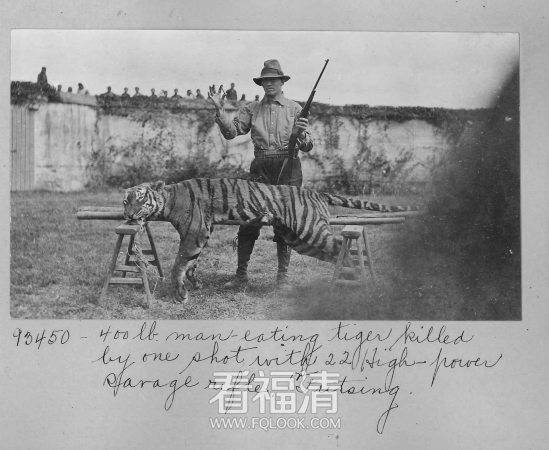 93450 - 400 lb. man-eating tiger killed
by one shot with 22 High-power
Savage rifle. Futsing.
看福清
WWW.FQLOOK.COM